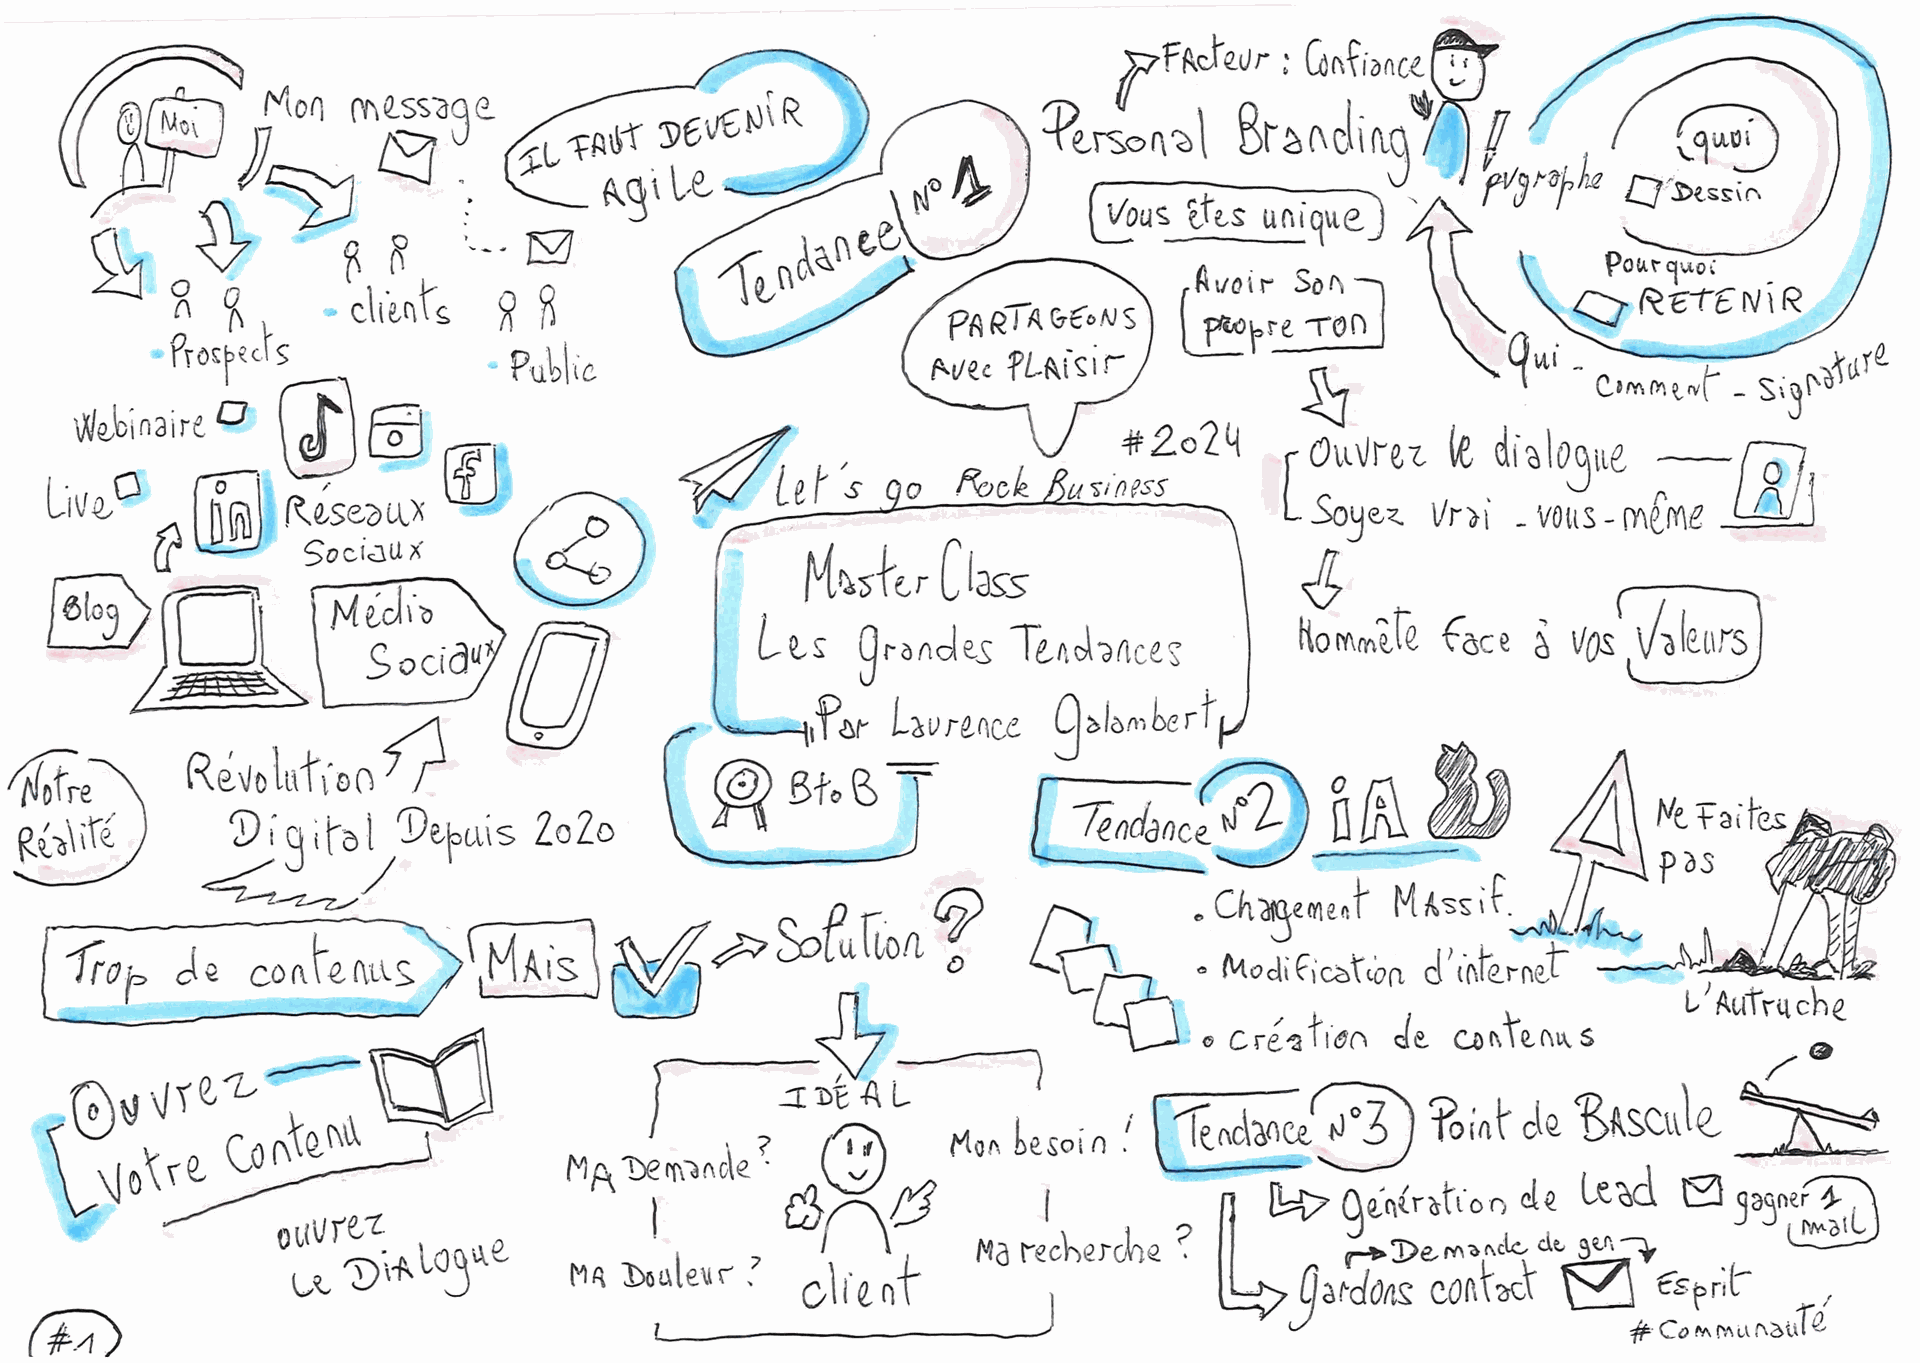 Moi
Mon message
Prospects
clients
Public
IL FAUT DEVENIR
Agile
Tendance N°1
Facteur : Confiance
Personal Branding
Vous êtes unique
Avoir son
propre Ton
Ouvrez le dialogue
Soyez vrai - vous-même
Hommête face à vos Valeurs
quoi
Dessin
Pourquoi
RETENIR
Qui -
Comment - Signature
PARTAGEONS
Avec PLAISIR
#2024
Let's go Rock Business
MasterClass
Les Grandes Tendances
Par Laurence Galambert
BtoB
Webinaire
Live
in
f
Réseaux
Sociaux
Blog
Média
Sociaux
Notre
Réalité
Révolution
Digital Depuis 2020
Trop de contenus
MAis
Solution ?
Ouvrez
Votre Contenu
ouvrez
Le DiALogue
IDÉAL
MA Demande ?
Mon besoin !
MA Douleur ?
Ma recherche ?
client
Tendance N°2
iA
Ne Faites
pas
L'Autruche
Chargement MAssif.
Modification d'internet
création de contenus
Tendance N°3
Point de BAscule
Génération de Lead
gagner 1
mail
Demande de gen
Gardons contact
Esprit
#Communauté
#1